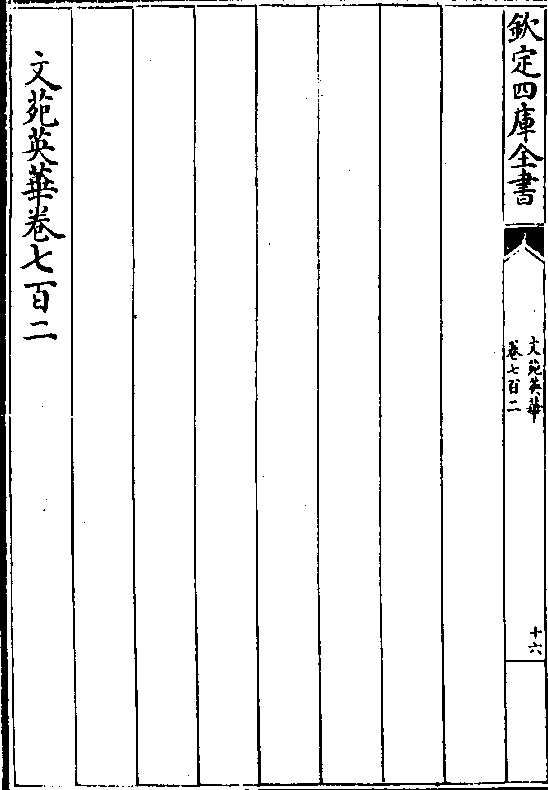 欽定四庫全書
文苑英華
卷七百二
十六
文苑英華卷七百二